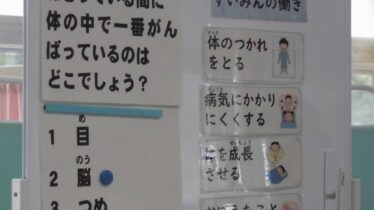 体の中で一番がん
ばっているのは
どこでしょう？
め
1 目
のう
2 脳
3 つめ
すいみんの働き
体のつかれ
をとる
病気にかかり
にくくする
体を成長
させる